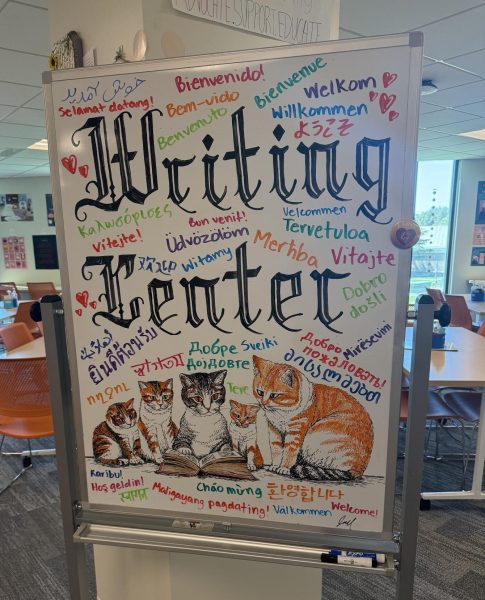 ADVOCATE SUPPORT EDUCATE
خوش آمدید
Bienvenido!
Bienvenue
Welkom
Selamat datang!
Bem-vindo
Willkommen
Benvenuto
ようこそ
Writing
Καλωσόρισες
Bun venit!
Velcommen
Tervetuloa
Vitejte!
Üdvözölöm
Merhba
Vitajte
Witamy
Dobro
došli
Center
ยินดีต้อนรับ
Добре
Дојдовте
Sveiki
Добро
пожаловать!
Mirësevini
Tere
Karibu!
Hoş geldin!
स्वागत
Maligayang pagdating!
Chào mừng
환영합니다
Välkommen
Welcome!
EXPO